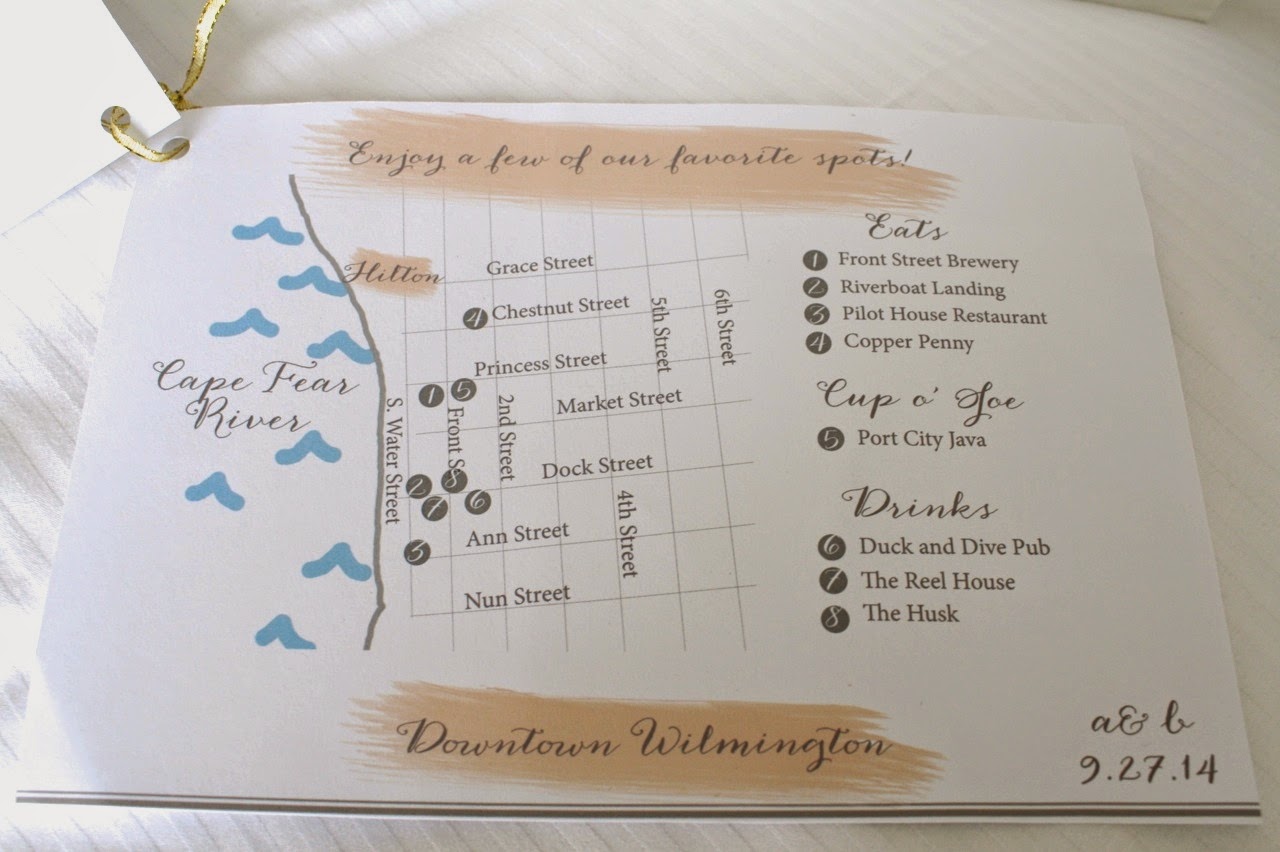 Enjoy a few of our favorite spots!
Hilton
Grace Street
4 Chestnut Street
5th Street
6th Street
Princess Street
1 5
Cape Fear
River
S. Water Street
Front S
2nd Street
Market Street
Dock Street
2 8
7 6
4th Street
Ann Street
3
Nun Street
Eats
1 Front Street Brewery
2 Riverboat Landing
3 Pilot House Restaurant
4 Copper Penny
Cup o' Joe
5 Port City Java
Drinks
6 Duck and Dive Pub
7 The Reel House
8 The Husk
Downtown Wilmington
a & b
9.27.14